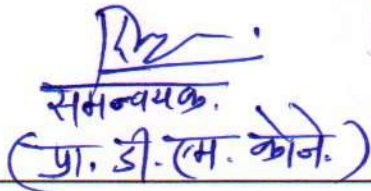 समन्वयक.
(प्रा. डी. एम. कोने.)